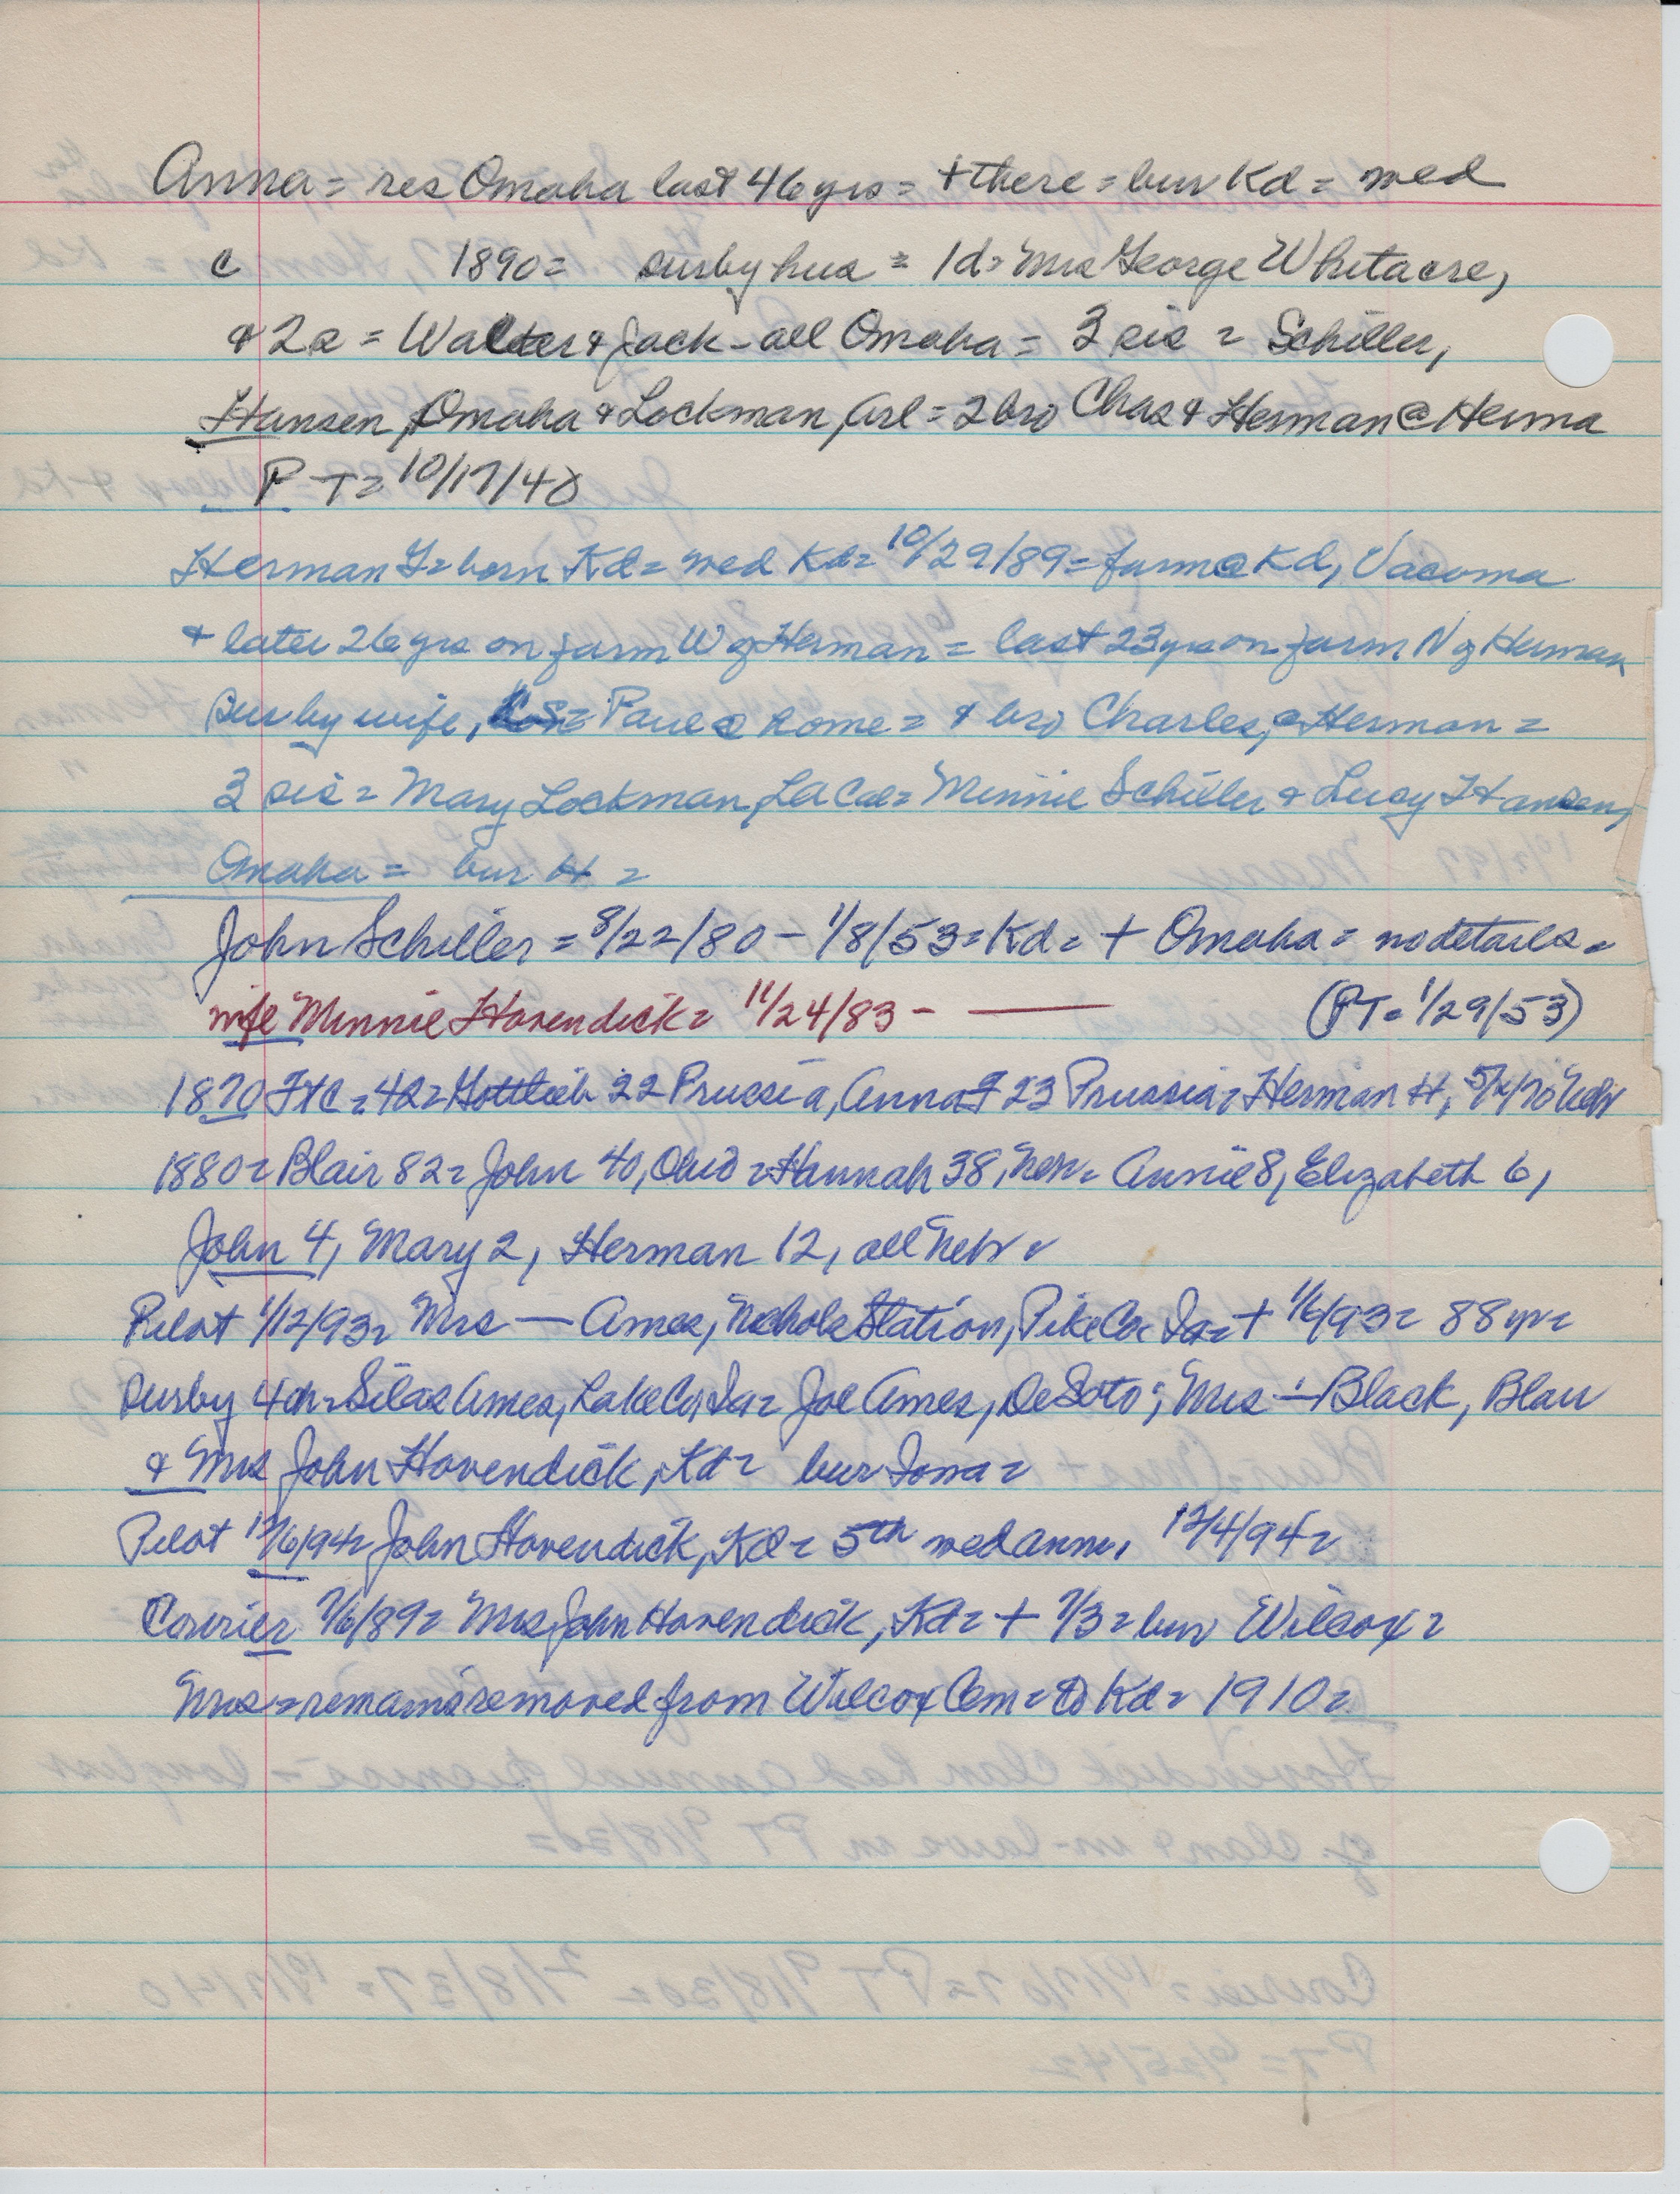 Anna = res Omaha last 46 yrs = + there = bur Kd = wed
c 1890 = surby hus = 1d = Mrs George Whitacre,
& 2s = Walter & Jack - all Omaha = 3 sis = Schiller,
Hansen, Omaha & Lockman, Arl = 2 bro Chas & Herman @ Herma
PT = 10/17/40
Herman = born Kd = wed Kd = 10/29/89 = farm @ Kd, Vacoma
& later 26 yrs on farm W of Herman = last 23 yrs on farm N of Herman
surby wife, Paul @ home = & bro Charles, @ Herman =
3 sis = Mary Lockman, LA Cal = Minnie Schiller & Lucy Hansen,
Omaha = bur H =
John Schiller = 8/22/80 - 1/8/53 = Kd = + Omaha = no details =
wife Minnie Hovendick = 11/24/83 - — (PT = 1/29/53)
1870 FtC = 42 = Gottlieb 22 Prussia, Anna 23 Prussia = Herman H, Nebr
1880 = Blair 82 = John 40, Ohio = Hannah 38, = Annie 8, Elizabeth 6,
John 4, Mary 2, Herman 12, all Nebr =
Pilot 1/12/93 = Mrs — Ames, Nichols Station, Pike Co Ia = + 1/6/93 = 88 yr =
surby 4 ch = Silas Ames, Lake Co, Ia = Joe Ames, DeSoto; Mrs — Black, Blair
& Mrs John Hovendick, Kd = bur Iowa =
Pilot 12/6/94 = John Hovendick, Kd = 5th wed anni, 12/4/94 =
Courier 7/6/89 = Mrs John Hovendick, Kd = + 7/3 = bur Wilcox =
Mrs = remains removed from Wilcox Cem = to Kd = 1910 =